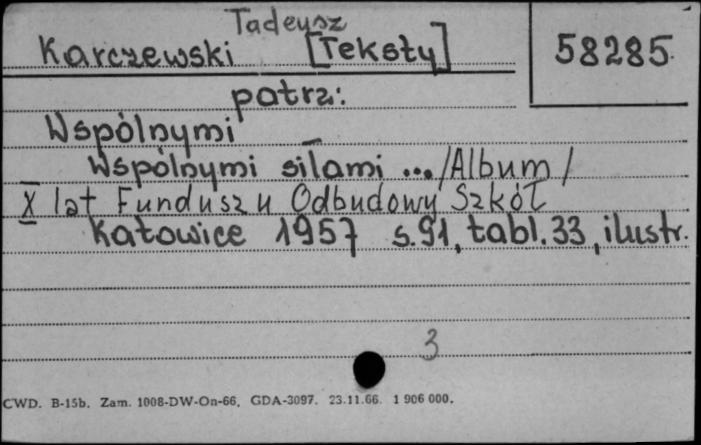 Tadeusz
Karczewski [Teksty] 58285
patrz:
Wspólnymi
Wspólnymi siłami ... /Album/
X lat Funduszu Odbudowy Szkół
Katowice 1957 s.91, tabl.33, ilustr.
3
CWD. B-15b. Zam. 1008-DW-On-66, GDA-3097. 23.11.66. 1 906 000.